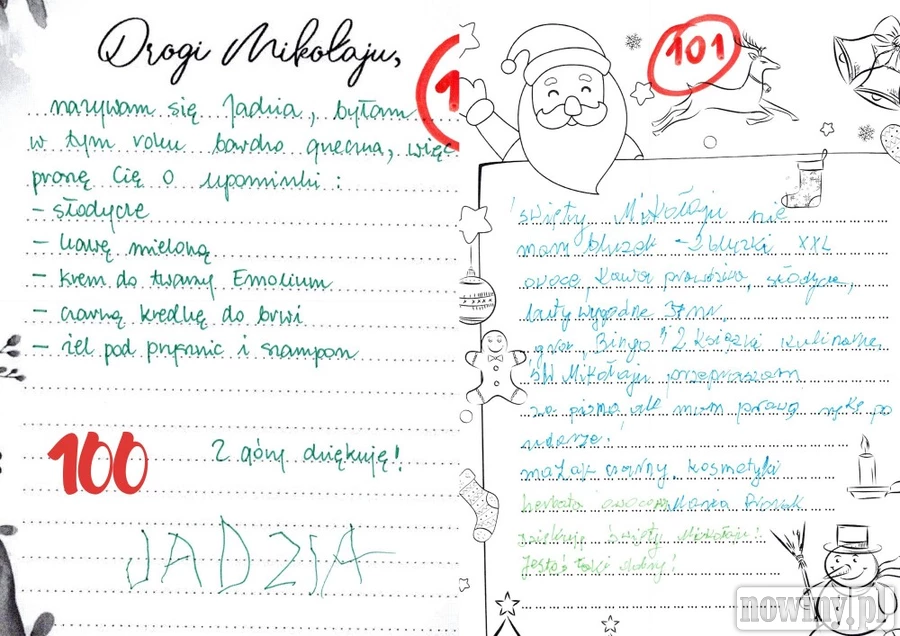 Drogi Mikołaju,
nazywam się Jadzia, byłam
w tym roku bardzo grzeczna, więc
proszę Cię o upominki :
- słodycze
- kawę mieloną
- krem do twarzy Emolium
- czarną kredkę do brwi
- żel pod prysznic i szampon
100
Z góry dziękuję!
JADZIA
101
Święty Mikołaju nie
mam bluzek - 2 bluzki XXL
owoce, kawa prawdziwa, słodycze,
buty wygodne 37 nr,
gra „Bingo" 2 książki kulinarne.
Św Mikołaju przepraszam
za pismo, ale mam prawą rękę po
udarze.
mazak czarny, kosmetyki
herbata owocowa
dziękuję Święty Mikołaju!
Jesteś taki dobry!
nowiny.pl